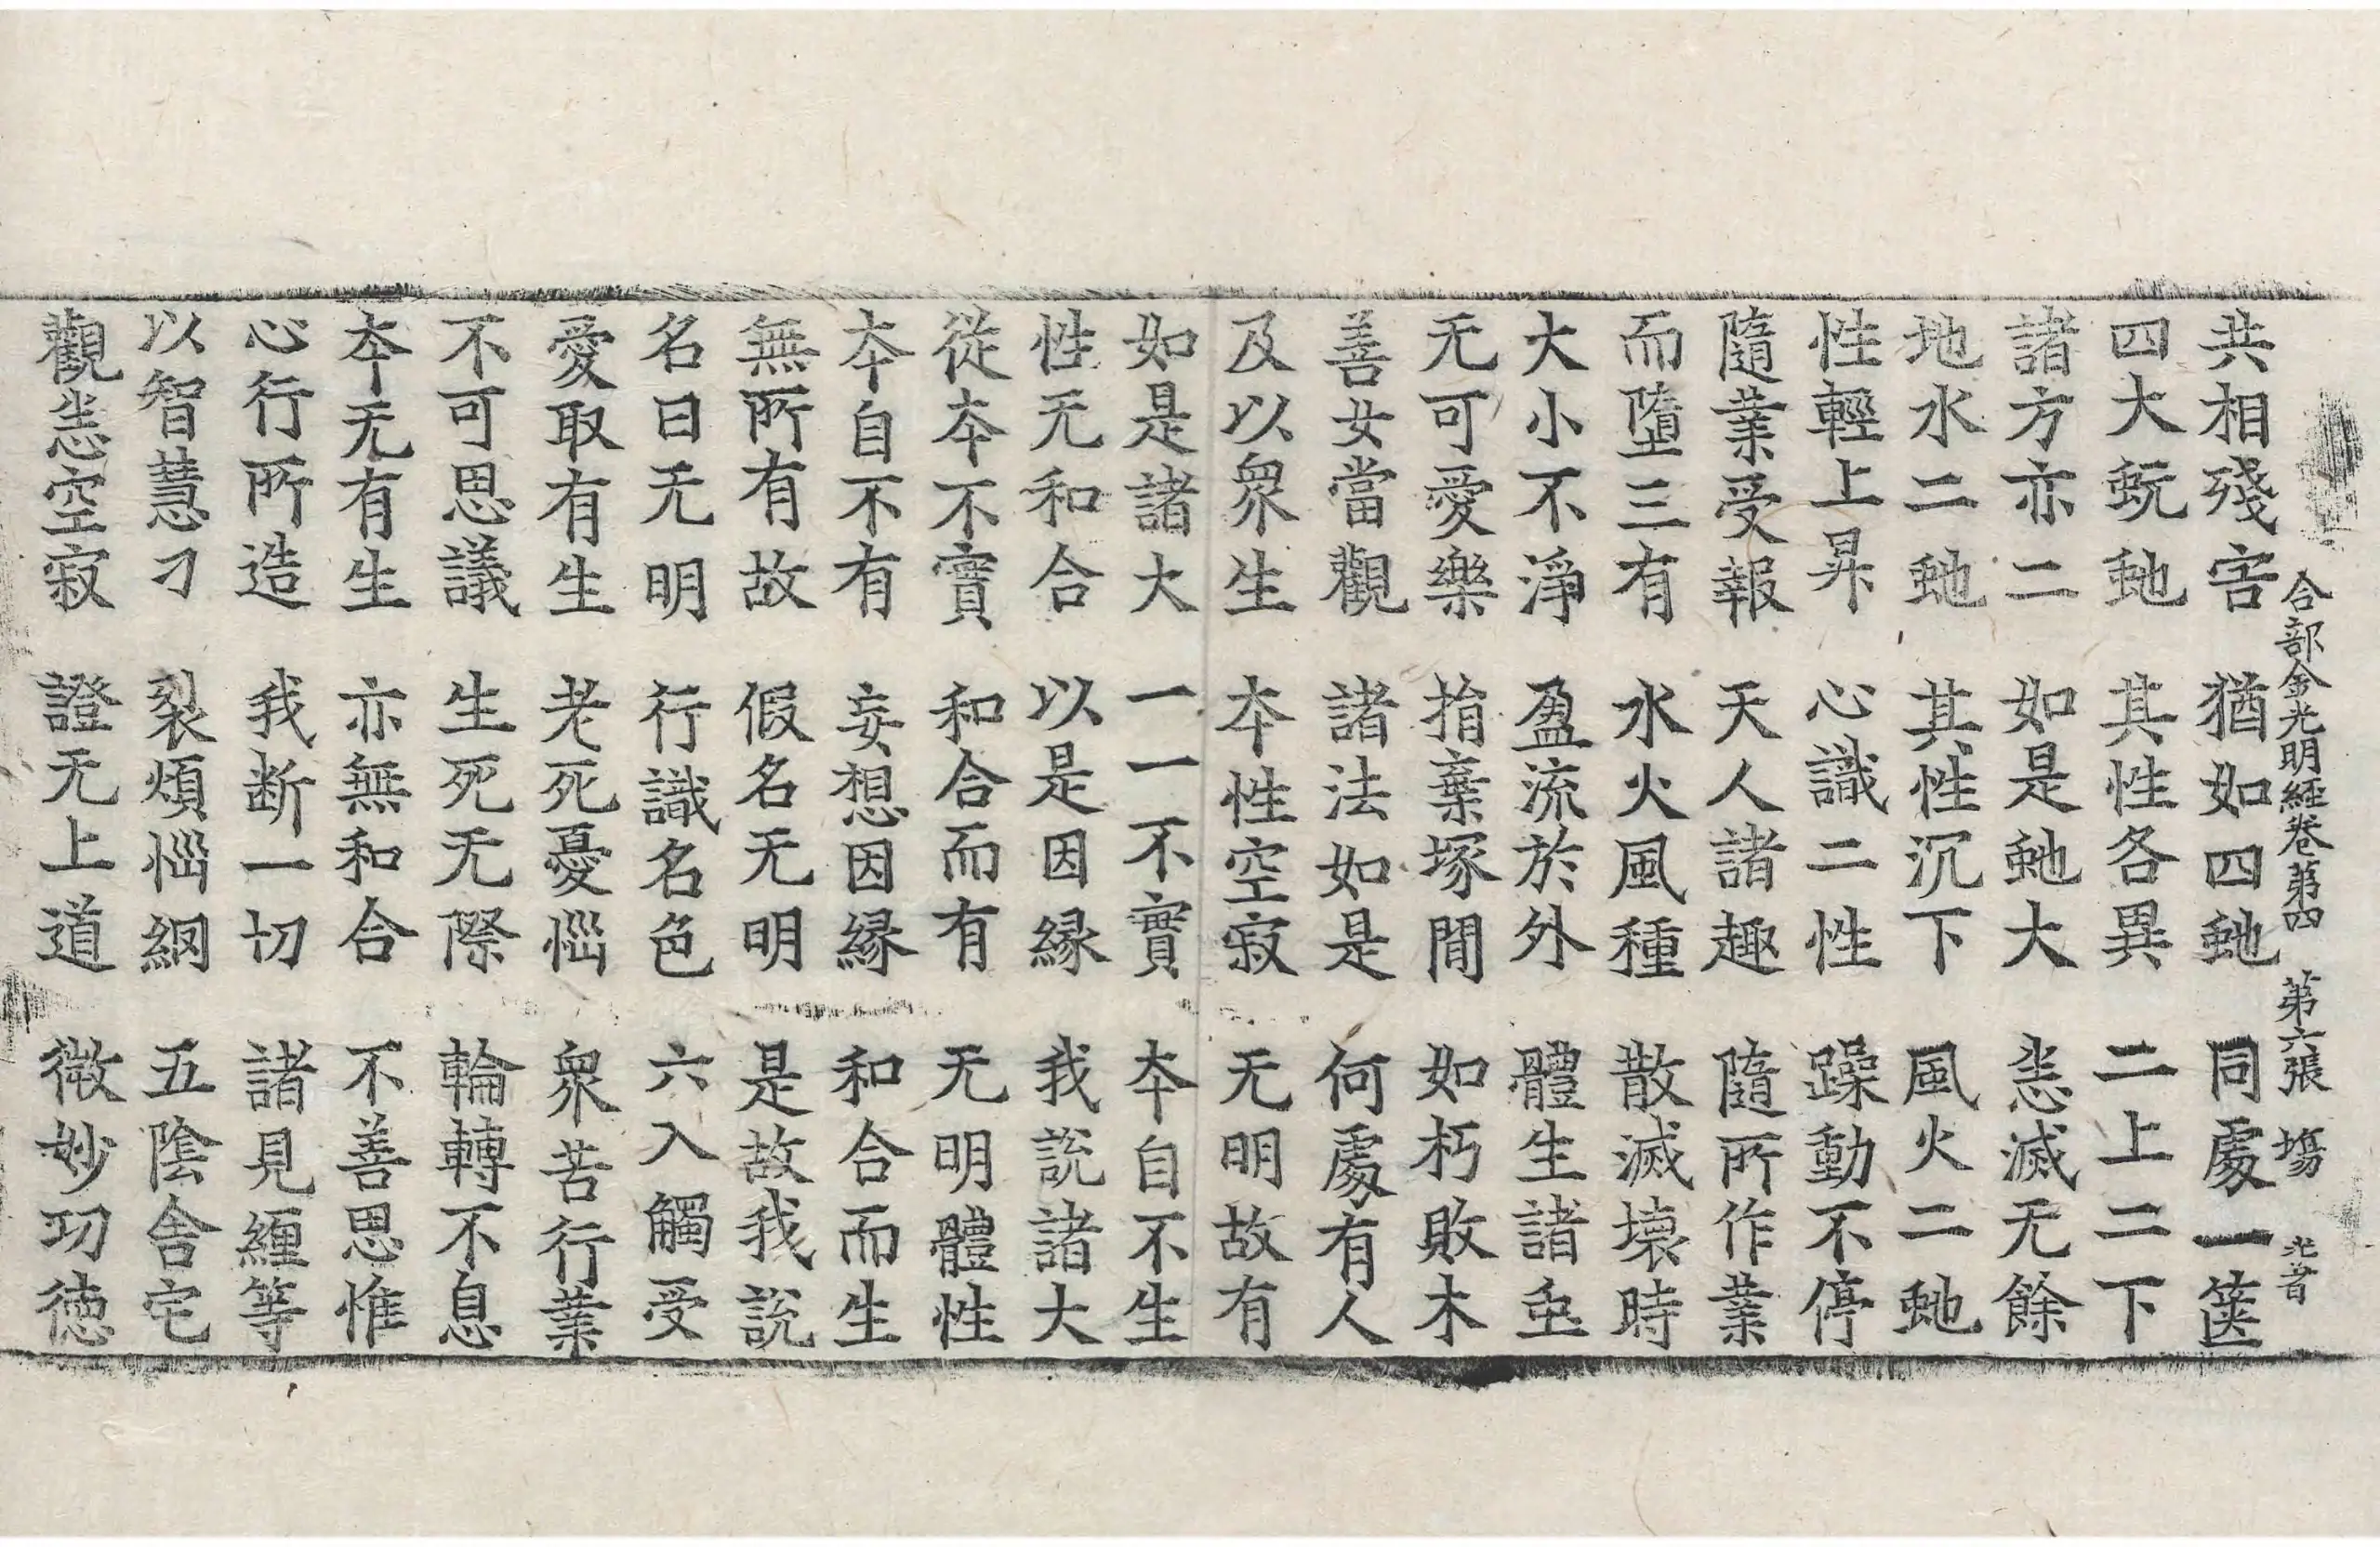 合部金光明経卷第四 第六張 塲
共相殘害 猶如四虵 同處一篋
四大蚖虵 其性各異 二上二下
諸方亦二 如是虵大 悉滅无餘
地水二虵 其性沉下 風火二虵
性輕上昇 心識二性 躁動不停
隨業受報 天人諸趣 隨所作業
而墮三有 水火風種 散滅壞時
大小不淨 盈流於外 體生諸䖝
无可愛樂 捐棄塚間 如朽敗木
善女當觀 諸法如是 何處有人
及以衆生 本性空寂 无明故有
如是諸大 一一不實 本自不生
性无和合 以是因緣 我說諸大
從本不實 和合而有 无明體性
本自不有 妄想因緣 和合而生
無所有故 假名无明 是故我說
名曰无明 行識名色 六入觸受
愛取有生 老死憂惱 衆苦行業
不可思議 生死无際 輪轉不息
本无有生 亦無和合 不善思惟
心行所造 我断一切 諸見纏等
以智慧刀 裂煩惱網 五陰舍宅
觀悉空寂 證无上道 微妙功德